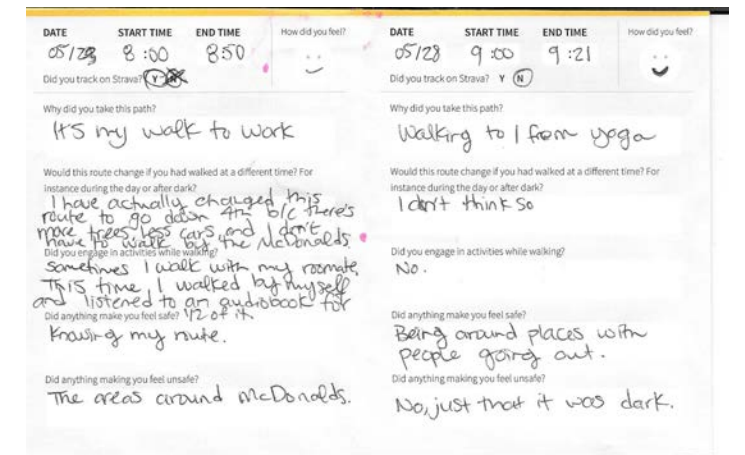 DATE START TIME END TIME How did you feel?
05/28 8:00 8:50
Did you track on Strava? Y N
Why did you take this path?
It's my walk to work
Would this route change if you had walked at a different time? For
instance during the day or after dark?
I have actually changed this
route to go down 4th b/c there's
more trees, less cars, and I don't
have to walk by the McDonalds.
Did you engage in activities while walking?
sometimes I walk with my roomate.
This time, I walked by myself
and listened to an audiobook for
1/2 of it.
Did anything make you feel safe?
Knowing my route.
Did anything making you feel unsafe?
The areas around McDonalds.
DATE START TIME END TIME How did you feel?
05/28 9:00 9:21
Did you track on Strava? Y N
Why did you take this path?
Walking to / from yoga
Would this route change if you had walked at a different time? For
instance during the day or after dark?
I don't think so
Did you engage in activities while walking?
No.
Did anything make you feel safe?
Being around places with
people going out.
Did anything making you feel unsafe?
No, just that it was dark.